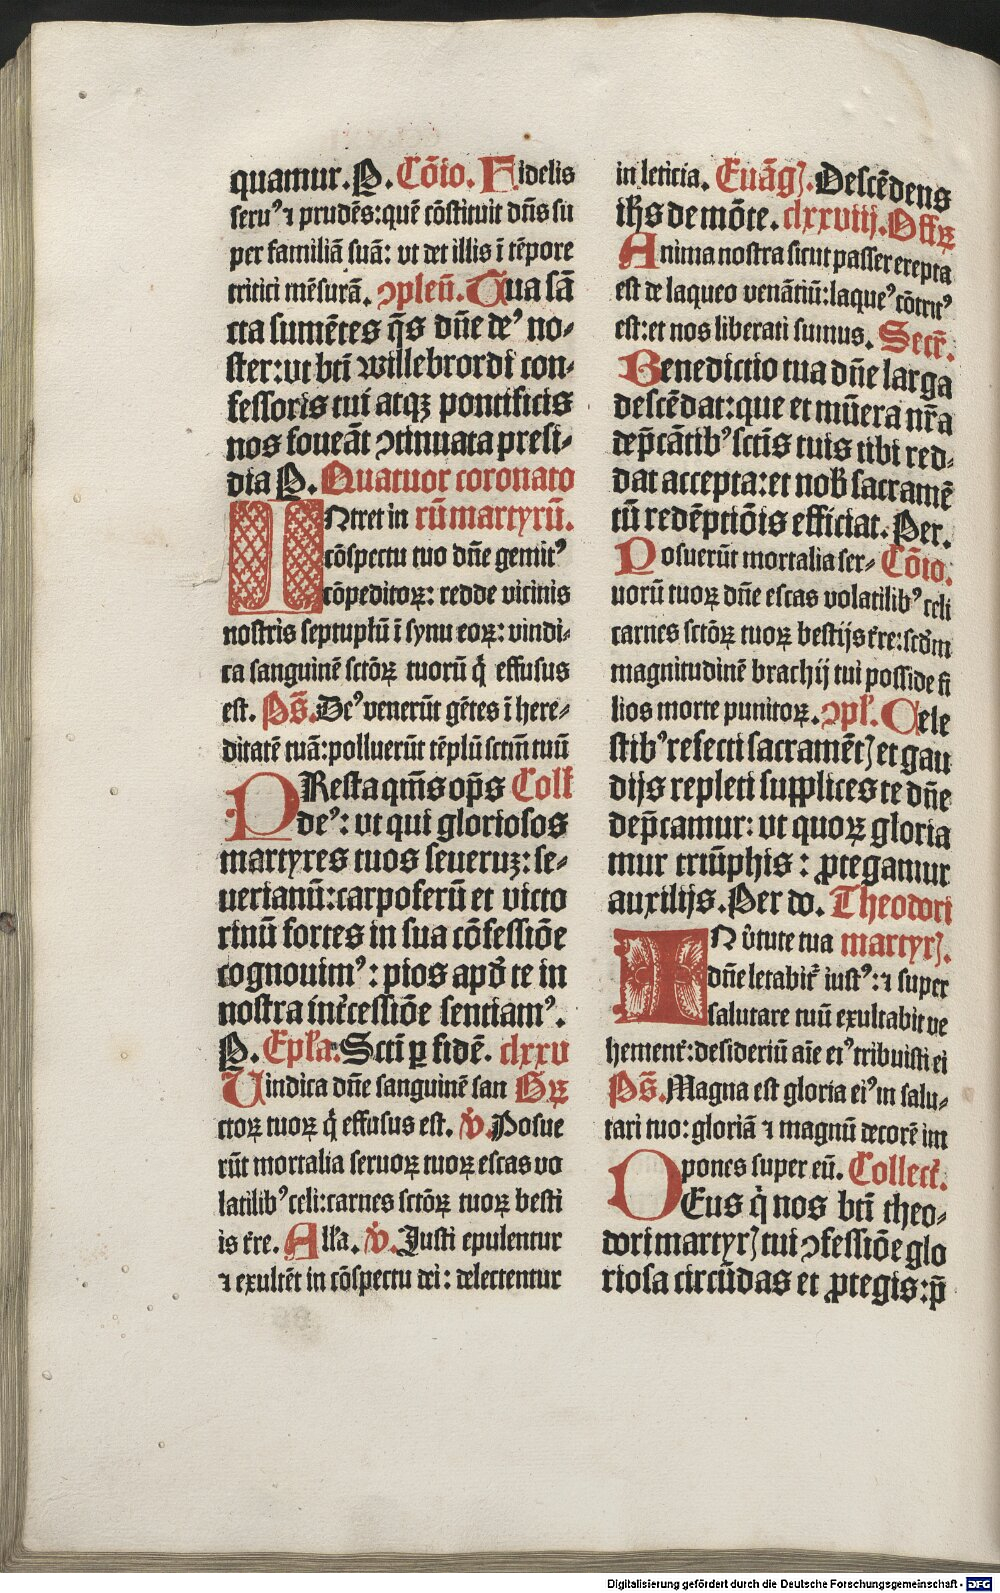 quamur. P. Cōio. Fidelis
seruꝰ ⁊ prudēs: quē cōstituit dn̄s su
per familiā suā: ut det illis ī tēpore
tritici mēsurā. ꝯpleñ. Tua sā
cta sumētes q̄s dn̄e deꝰ no⸗
ster: ut bt̄i willebrordi con⸗
fessoris tui atqꝫ pontificis
nos foueāt ꝯtinuata presi⸗
dia P. Quatuor coronato
INtret in rū martyrū.
cōspectu tuo dn̄e gemitꝰ
cōpeditoꝝ: redde vicinis
nostris septuplū ī synu eoꝝ: vindi⸗
ca sanguinē sctōꝝ tuorū q̇ effusus
est. Ps̄. Deꝰ venerūt gētes ī here⸗
ditatē tuā: polluerūt tēplū sctm̄ tuū
PResta qm̄s op̄s Coll
deꝰ: ut qui gloriosos
martyres tuos seueruꝫ: se⸗
uerianū: carpoferū et victo
rinū fortes in sua cōfessiōe
cognouimꝰ: pios apd̄ te in
nostra int̄cessiōe sentiamꝰ.
P. Epl̄a. Scti ꝑ fidē. clxxv
Vindica dn̄e sanguinē san Gꝝ
ctoꝝ tuoꝝ q̇ effusus est. v̇. Posue
rūt mortalia seruoꝝ tuoꝝ escas vo
latilibꝰ celi: carnes sctōꝝ tuoꝝ besti
is t̄re. All̄a. v̇. Justi epulentur
⁊ exultēt in cōspectu dei: delectentur
in leticia. Euāgꝭ. Descēdens
ih̄s de mōte. clxxviij. Offꝝ
Anima nostra sicut passer erepta
est de laqueo venātiū: laqueꝰ cōtritꝰ
est: et nos liberati sumus. Secr̄.
Benedictio tua dn̄e larga
descēdat: que et mūera nr̄a
dep̄cātibꝰ sctīs tuis tibi red⸗
dat accepta: et nob̄ sacramē
tū redēptiōis efficiat. Per.
Posuerūt mortalia ser⸗ Cōio.
uorū tuoꝝ dn̄e escas volatilibꝰ celi
carnes sctōꝝ tuoꝝ bestijs t̄re: scd̄m
magnitudinē brachij tui posside fi
lios morte punitoꝝ. ꝯpl̄. Cele
stibꝰ refecti sacramētꝭ et gau
dijs repleti supplices te dn̄e
dep̄camur: ut quoꝝ gloria
mur triūphis: ꝓtegamur
auxilijs. Per do. Theodori
IN v̄tute tua martyrꝭ.
dn̄e letabit̄ iustꝰ: ⁊ super
salutare tuū exultabit ve
hement̄: desideriū aīe eiꝰ tribuisti ei
Ps̄. Magna est gloria eiꝰ in salu⸗
tari tuo: gloriā ⁊ magnū decorē im
pones super eū. Collect̄.
DEus q̇ nos bt̄i theo⸗
dori martyrꝭ tui ꝯfessiōe glo
riosa circūdas et ꝓtegis: p̄
Digitalisierung gefördert durch die Deutsche Forschungsgemeinschaft - DFG